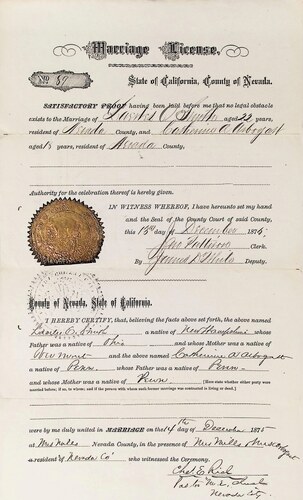 Marriage License.
No. 89
State of California, County of Nevada.
SATISFACTORY PROOF having been made before me that no legal obstacle
exists to the Marriage of C. Smith aged 22 years,
resident of Nevada County, and Catherine A. Arbogast
aged 18 years, resident of Nevada County.
Authority for the celebration thereof is hereby given.
IN WITNESS WHEREOF, I have hereunto set my hand
and the Seal of the County Court of said County,
this 13th day of December 1875
Clerk.
By James D. Deputy.
County of Nevada, State of California.
I HEREBY CERTIFY, that, believing the facts above set forth, the above named
C. Smith a native of New Hampshire whose
Father was a native of Ohio and whose Mother was a native of
Vermont and the above named Catherine A. Arbogast
a native of Penn. whose Father was a native of Penn
and whose Mother was a native of Penn
were by me duly united in MARRIAGE on the 14th day of December 1875
at Nevada County, in the presence of Mrs Mills
a resident of Nevada Co who witnessed the Ceremony.
Chas E Rich
Pastor M. E. Church
Nevada City